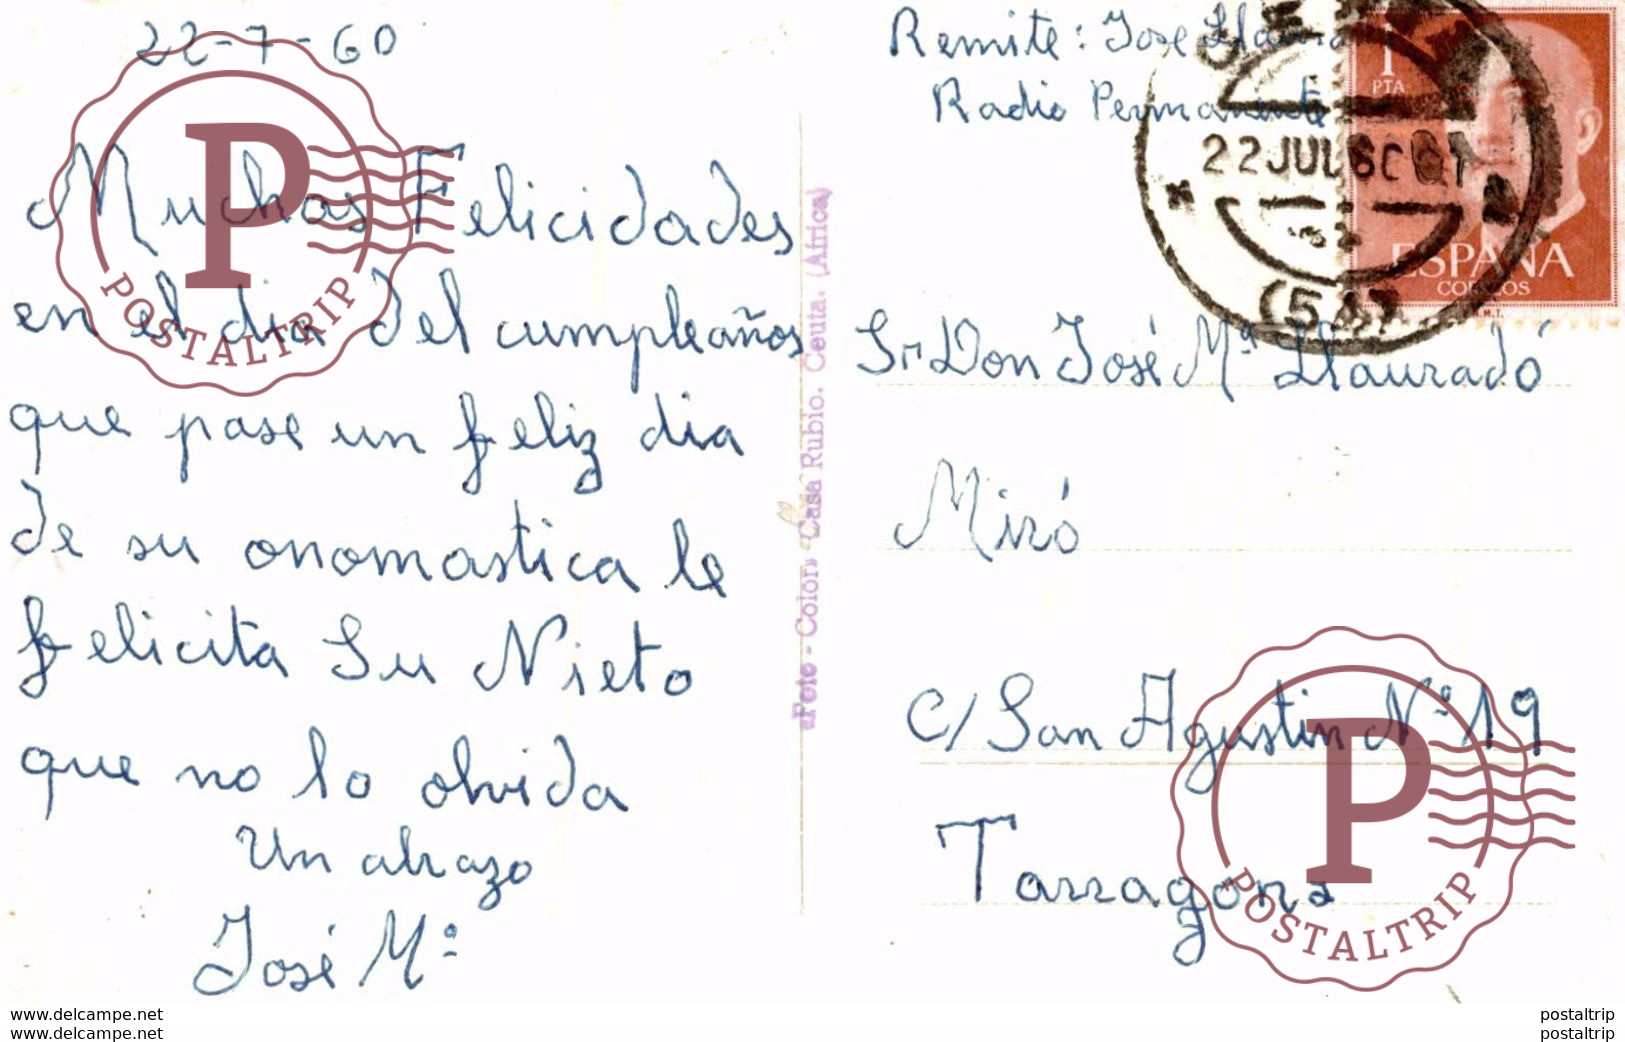 22-7-60
Muchas Felicidades
en el dia del cumpleaños
que pase un feliz dia
de su onomastica le
felicita Su Nieto
que no lo olvida
Un abrazo
José Mª
«Foto - Color» Casa Rubio. Ceuta. (Africa)
Remite: Jose
Radio Permanente
1
PTA
ESPAÑA
CORREOS
22 JUL 60
Sr Don José Mª Llauradó
Miró
C/ San Agustin Nº 19
Tarragona
P
POSTALTRIP
P
POSTALTRIP
www.delcampe.net
postaltrip
www.delcampe.net
postaltrip